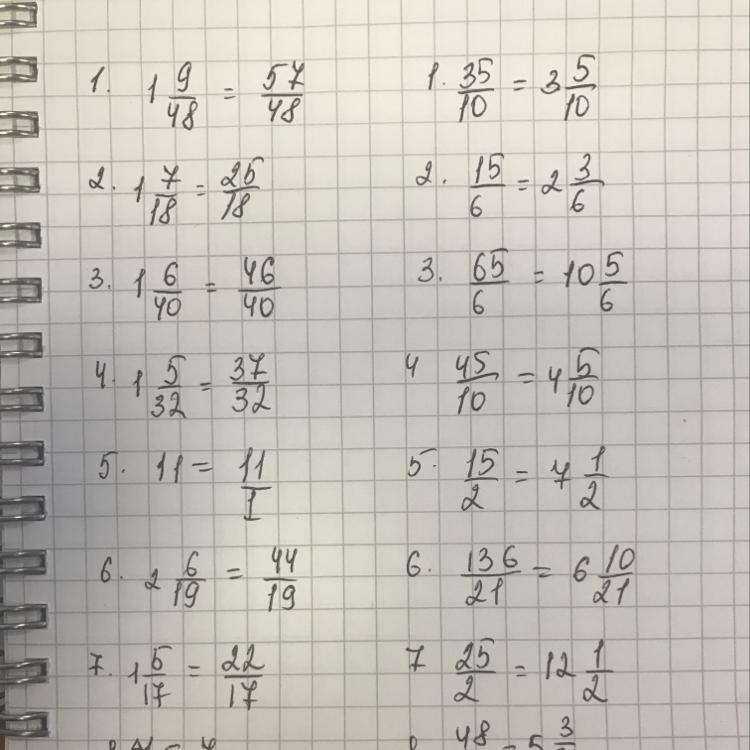 1. 1 9/48 = 57/48
2. 1 7/18 = 25/18
3. 1 6/40 = 46/40
4. 1 5/32 = 37/32
5. 11 = 11/1
6. 2 6/19 = 44/19
7. 1 5/17 = 22/17
1. 35/10 = 3 5/10
2. 15/6 = 2 3/6
3. 65/6 = 10 5/6
4 45/10 = 4 5/10
5. 15/2 = 7 1/2
6. 136/21 = 6 10/21
7 25/2 = 12 1/2